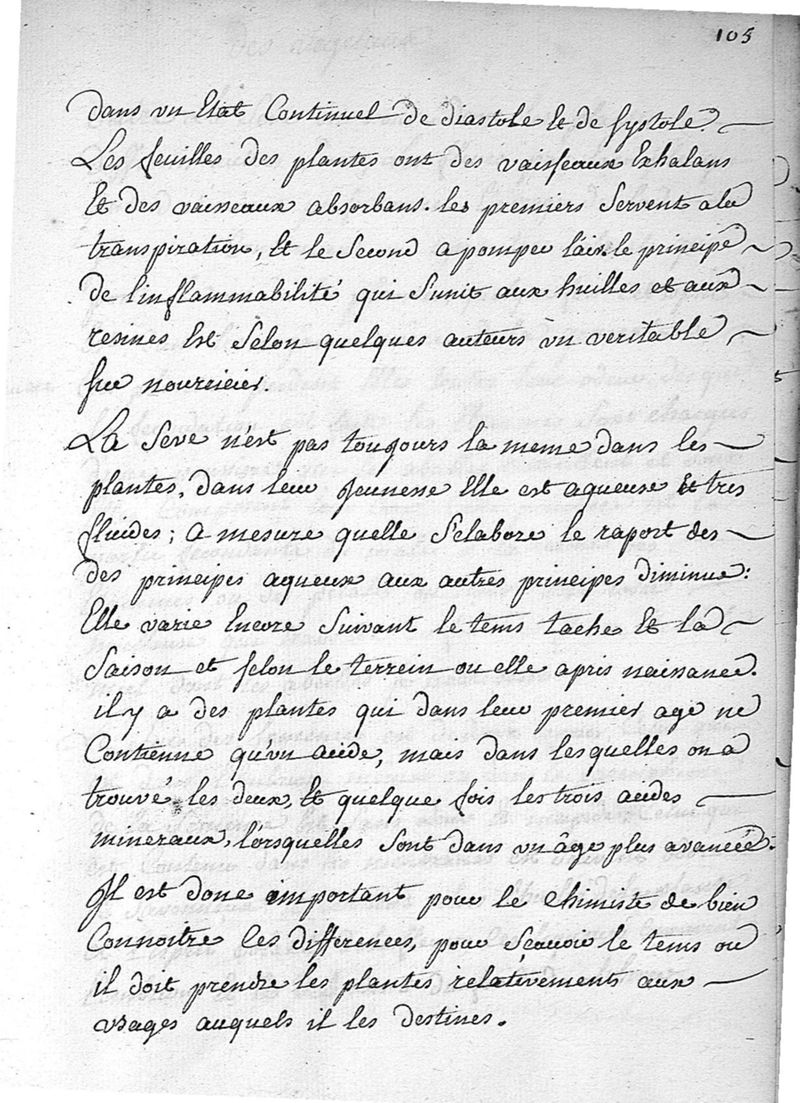 105
dans un Etat Continuel de diastole et de systole.
Les feuilles des plantes ont des vaisseaux Exhalans
Et des vaisseaux absorbans. les premiers Servent a la
transpiration, Et le Second a pomper l'air. le principe
de l'inflammabilité qui S'unit aux huilles et aux
resines Est Selon quelques auteurs un veritable
suc nouricier.
La Seve n'est pas toujours la meme dans les
plantes, dans leur jeunesse Elle est aqueuse Et tres
fluides; a mesure quelle S'elabore le raport des
des principes aqueux aux autres principes diminue:
Elle varie Encore Suivant le tems tache Et la
Saison et selon le terrein ou elle a pris naissance.
il y a des plantes qui dans leur premier age ne
Contienne qu'un acide, mais dans lesquelles on a
trouvé les deux, Et quelque fois les trois acides
mineraux, lorsquelles Sont dans un âge plus avancée.
Il est donc important pour le Chimiste de bien
Connoitre Ces differences, pour Scavoir le tems ou
il doit prendre les plantes relativements aux
usages auquels il les destines.